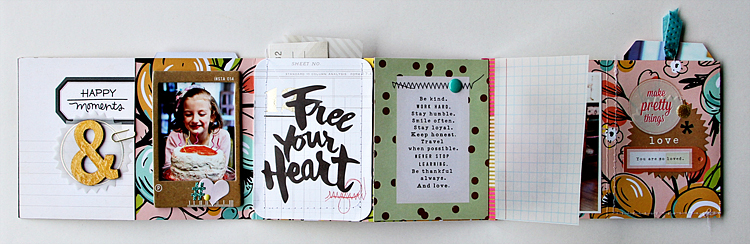 HAPPY
moments
&
INSTA 014
#
SHEET NO.
Free
your
Heart
Be kind.
WORK HARD.
Stay humble.
Smile often.
Stay loyal.
Keep honest.
Travel
when possible.
NEVER STOP
LEARNING.
Be thankful
always.
And love.
make
pretty
things
love
You are so loved.